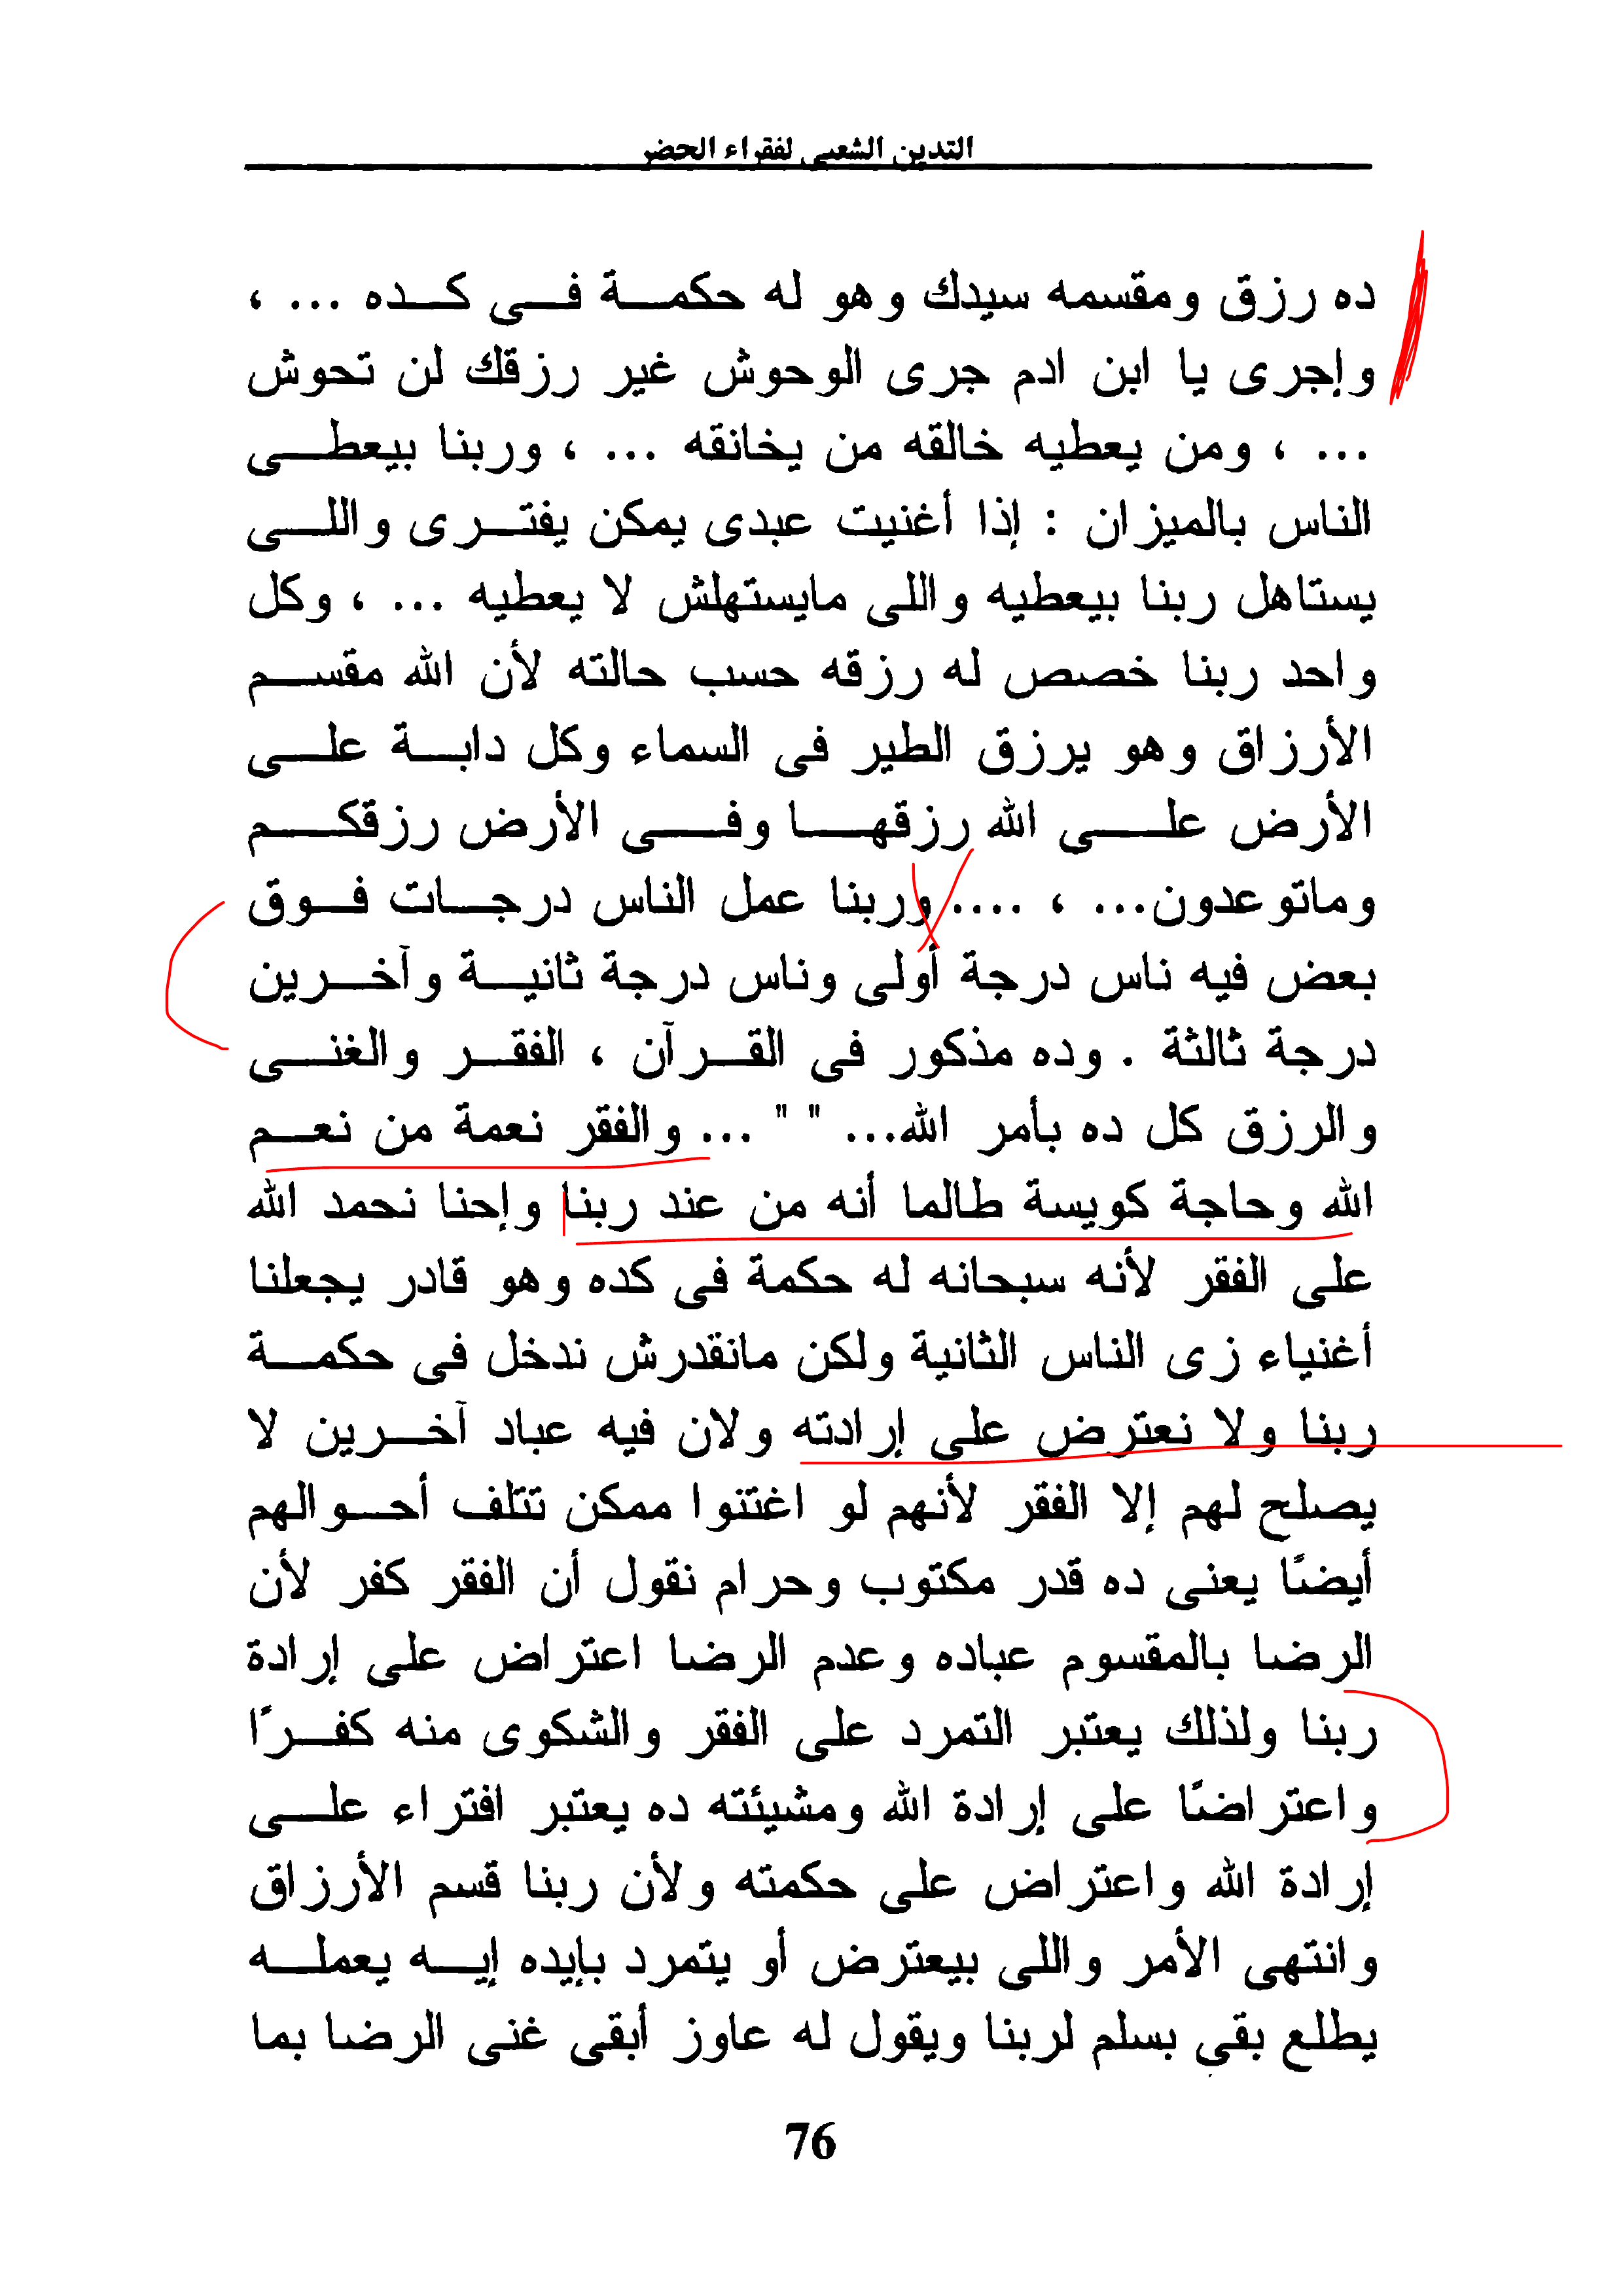 التدين الشعبى لفقراء الحضر
ده رزق ومقسمه سيدك وهو له حكمة فى كده ... ،
وإجرى يا ابن ادم جرى الوحوش غير رزقك لن تحوش
... ، ومن يعطيه خالقه من يخانقه ... ، وربنا بيعطى
الناس بالميزان : إذا أغنيت عبدى يمكن يفترى واللى
يستاهل ربنا بيعطيه واللى مايستهلش لا يعطيه ... ، وكل
واحد ربنا خصص له رزقه حسب حالته لأن الله مقسم
الأرزاق وهو يرزق الطير فى السماء وكل دابة على
الأرض على الله رزقها وفى الأرض رزقكم
وماتوعدون... ، .... وربنا عمل الناس درجات فوق
بعض فيه ناس درجة أولى وناس درجة ثانية وآخرين
درجة ثالثة . وده مذكور فى القرآن ، الفقر والغنى
والرزق كل ده بأمر الله... " " ... والفقر نعمة من نعم
الله وحاجة كويسة طالما أنه من عند ربنا وإحنا نحمد الله
على الفقر لأنه سبحانه له حكمة فى كده وهو قادر يجعلنا
أغنياء زى الناس الثانية ولكن مانقدرش ندخل فى حكمة
ربنا ولا نعترض على إرادته ولان فيه عباد آخرين لا
يصلح لهم إلا الفقر لأنهم لو اغتنوا ممكن تتلف أحوالهم
أيضًا يعنى ده قدر مكتوب وحرام نقول أن الفقر كفر لأن
الرضا بالمقسوم عباده وعدم الرضا اعتراض على إرادة
ربنا ولذلك يعتبر التمرد على الفقر والشكوى منه كفرًا
واعتراضًا على إرادة الله ومشيئته ده يعتبر افتراء على
إرادة الله واعتراض على حكمته ولأن ربنا قسم الأرزاق
وانتهى الأمر واللى بيعترض أو يتمرد بإيده إيه يعمله
يطلع بقى بسلم لربنا ويقول له عاوز أبقى غنى الرضا بما
76